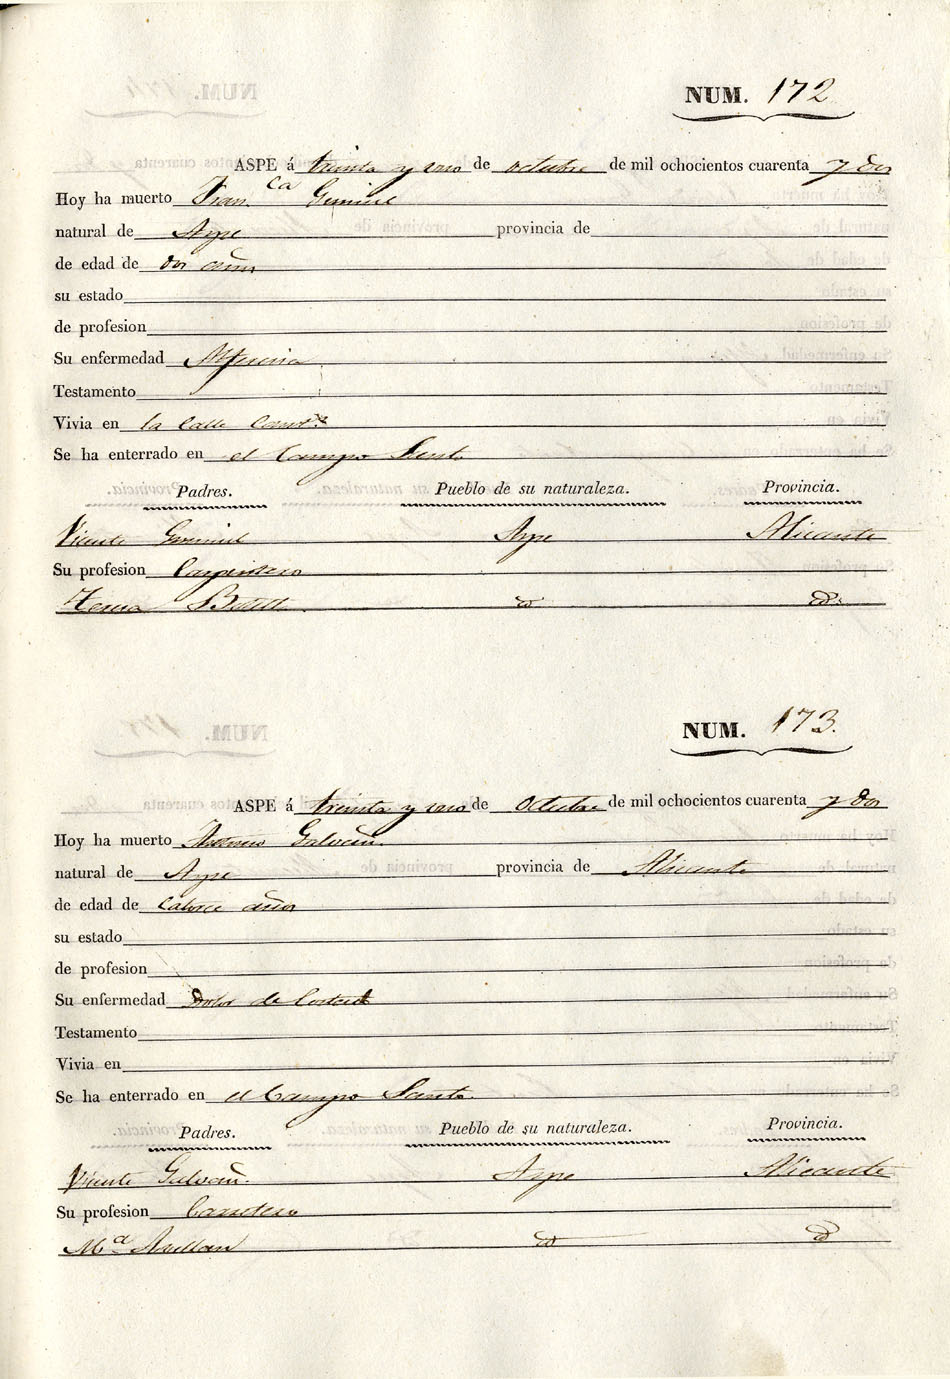 NUM. 172
ASPE á treinta y uno de octubre de mil ochocientos cuarenta y dos
Hoy ha muerto Fran.ca
natural de Aspe provincia de
de edad de dos años
su estado
de profesion
Su enfermedad
Testamento
Vivia en la Calle
Se ha enterrado en el Campo Santo
Padres. Pueblo de su naturaleza. Provincia.
Vicente Aspe Alicante
Su profesion Carpintero
Teresa Botella id id
NUM. 173.
ASPE á treinta y uno de Octubre de mil ochocientos cuarenta y dos
Hoy ha muerto Antonio Galvañ.
natural de Aspe provincia de Alicante
de edad de catorce años
su estado
de profesion
Su enfermedad Dolor de Costado
Testamento
Vivia en
Se ha enterrado en el Campo Santo.
Padres. Pueblo de su naturaleza. Provincia.
Vicente Galvañ. Aspe Alicante
Su profesion
M.a id id